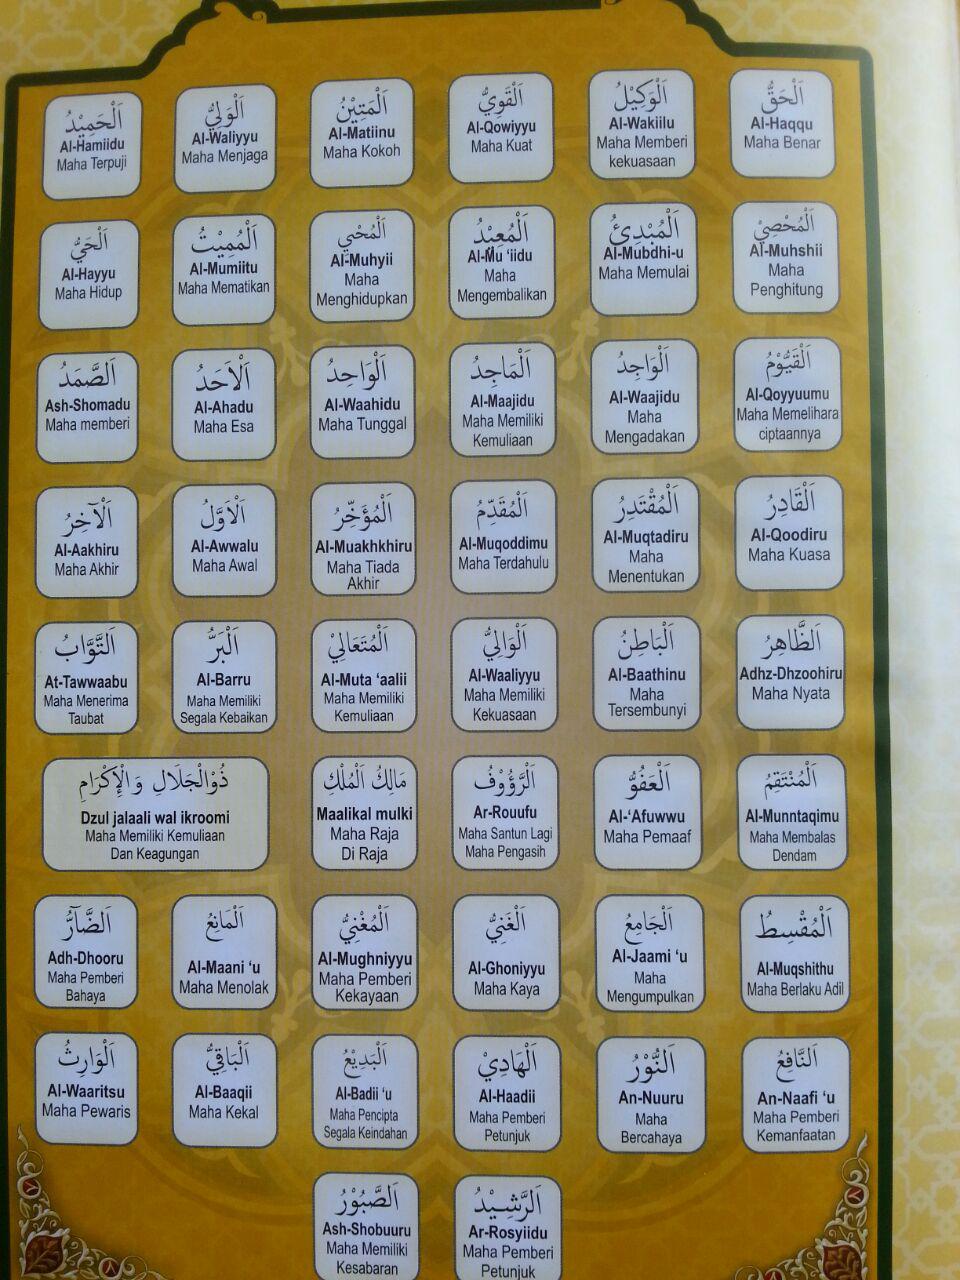 اَلْحَقُّ
Al-Haqqu
Maha Benar
اَلْوَكِيْلُ
Al-Wakiilu
Maha Memberi
kekuasaan
اَلْقَوِيُّ
Al-Qowiyyu
Maha Kuat
اَلْمَتِيْنُ
Al-Matiinu
Maha Kokoh
اَلْوَلِيُّ
Al-Waliyyu
Maha Menjaga
اَلْحَمِيْدُ
Al-Hamiidu
Maha Terpuji
اَلْمُحْصِيْ
Al-Muhshii
Maha
Penghitung
اَلْمُبْدِئُ
Al-Mubdhi-u
Maha Memulai
اَلْمُعِيْدُ
Al-Mu ‘iidu
Maha
Mengembalikan
اَلْمُحْيِي
Al-Muhyii
Maha
Menghidupkan
اَلْمُمِيْتُ
Al-Mumiitu
Maha Mematikan
اَلْحَيُّ
Al-Hayyu
Maha Hidup
اَلْقَيُّوْمُ
Al-Qoyyuumu
Maha Memelihara
ciptaannya
اَلْوَاجِدُ
Al-Waajidu
Maha
Mengadakan
اَلْمَاجِدُ
Al-Maajidu
Maha Memiliki
Kemuliaan
اَلْوَاحِدُ
Al-Waahidu
Maha Tunggal
اَلْاَحَدُ
Al-Ahadu
Maha Esa
اَلصَّمَدُ
Ash-Shomadu
Maha memberi
اَلْقَادِرُ
Al-Qoodiru
Maha Kuasa
اَلْمُقْتَدِرُ
Al-Muqtadiru
Maha
Menentukan
اَلْمُقَدِّمُ
Al-Muqoddimu
Maha Terdahulu
اَلْمُؤَخِّرُ
Al-Muakhkhiru
Maha Tiada
Akhir
اَلْاَوَّلُ
Al-Awwalu
Maha Awal
اَلْآخِرُ
Al-Aakhiru
Maha Akhir
اَلظَّاهِرُ
Adhz-Dhzoohiru
Maha Nyata
اَلْبَاطِنُ
Al-Baathinu
Maha
Tersembunyi
اَلْوَالِيُّ
Al-Waaliyyu
Maha Memiliki
Kekuasaan
اَلْمُتَعَالِيْ
Al-Muta ‘aalii
Maha Memiliki
Kemuliaan
اَلْبَرُّ
Al-Barru
Maha Memiliki
Segala Kebaikan
اَلتَّوَّابُ
At-Tawwaabu
Maha Menerima
Taubat
اَلْمُنْتَقِمُ
Al-Munntaqimu
Maha Membalas
Dendam
اَلْعَفُوُّ
Al-‘Afuwwu
Maha Pemaaf
اَلرَّؤُوْفُ
Ar-Rouufu
Maha Santun Lagi
Maha Pengasih
مَالِكُ الْمُلْكِ
Maalikal mulki
Maha Raja
Di Raja
ذُوْالْجَلَالِ وَالْإِكْرَامِ
Dzul jalaali wal ikroomi
Maha Memiliki Kemuliaan
Dan Keagungan
اَلْمُقْسِطُ
Al-Muqshithu
Maha Berlaku Adil
اَلْجَامِعُ
Al-Jaami ‘u
Maha
Mengumpulkan
اَلْغَنِيُّ
Al-Ghoniyyu
Maha Kaya
اَلْمُغْنِيُّ
Al-Mughniyyu
Maha Pemberi
Kekayaan
اَلْمَانِعُ
Al-Maani ‘u
Maha Menolak
اَلضَّآرُّ
Adh-Dhooru
Maha Pemberi
Bahaya
اَلنَّافِعُ
An-Naafi ‘u
Maha Pemberi
Kemanfaatan
اَلنُّوْرُ
An-Nuuru
Maha
Bercahaya
اَلْهَادِيْ
Al-Haadii
Maha Pemberi
Petunjuk
اَلْبَدِيْعُ
Al-Badii ‘u
Maha Pencipta
Segala Keindahan
اَلْبَاقِيُّ
Al-Baaqii
Maha Kekal
اَلْوَارِثُ
Al-Waaritsu
Maha Pewaris
اَلرَّشِيْدُ
Ar-Rosyiidu
Maha Pemberi
Petunjuk
اَلصَّبُوْرُ
Ash-Shobuuru
Maha Memiliki
Kesabaran